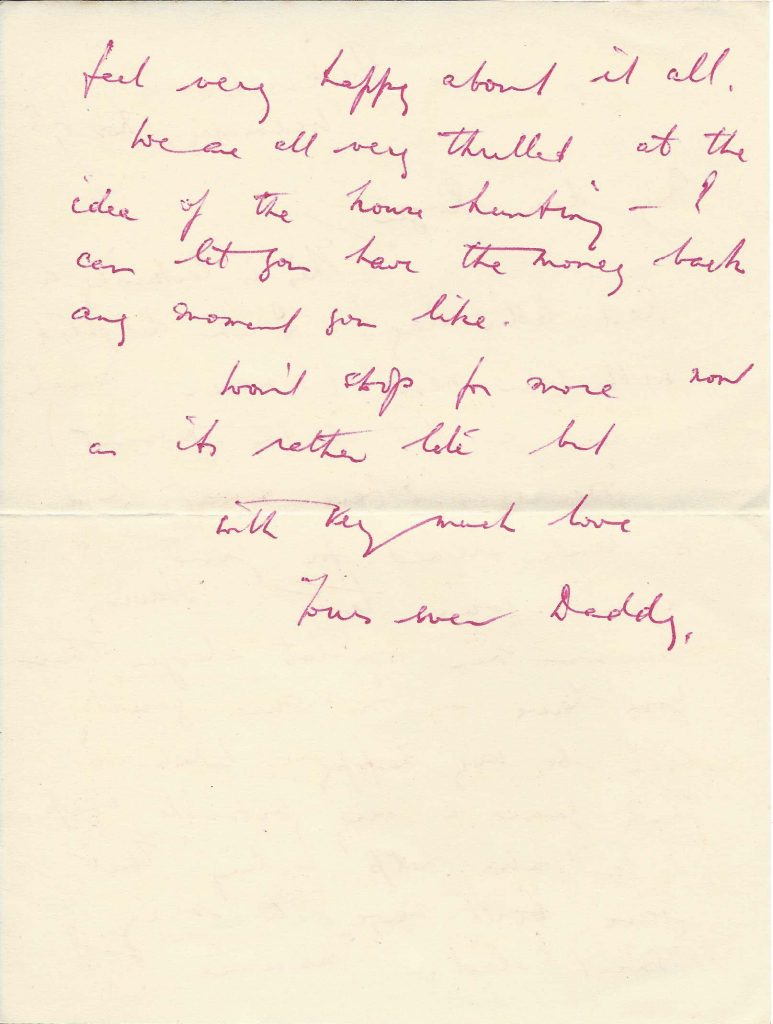 feel very happy about it all.
We are all very thrilled at the
idea of the house hunting – I
can let you have the money back
any moment you like.
Won't stop for more now
as its rather late but
with very much love
Yours ever Daddy.